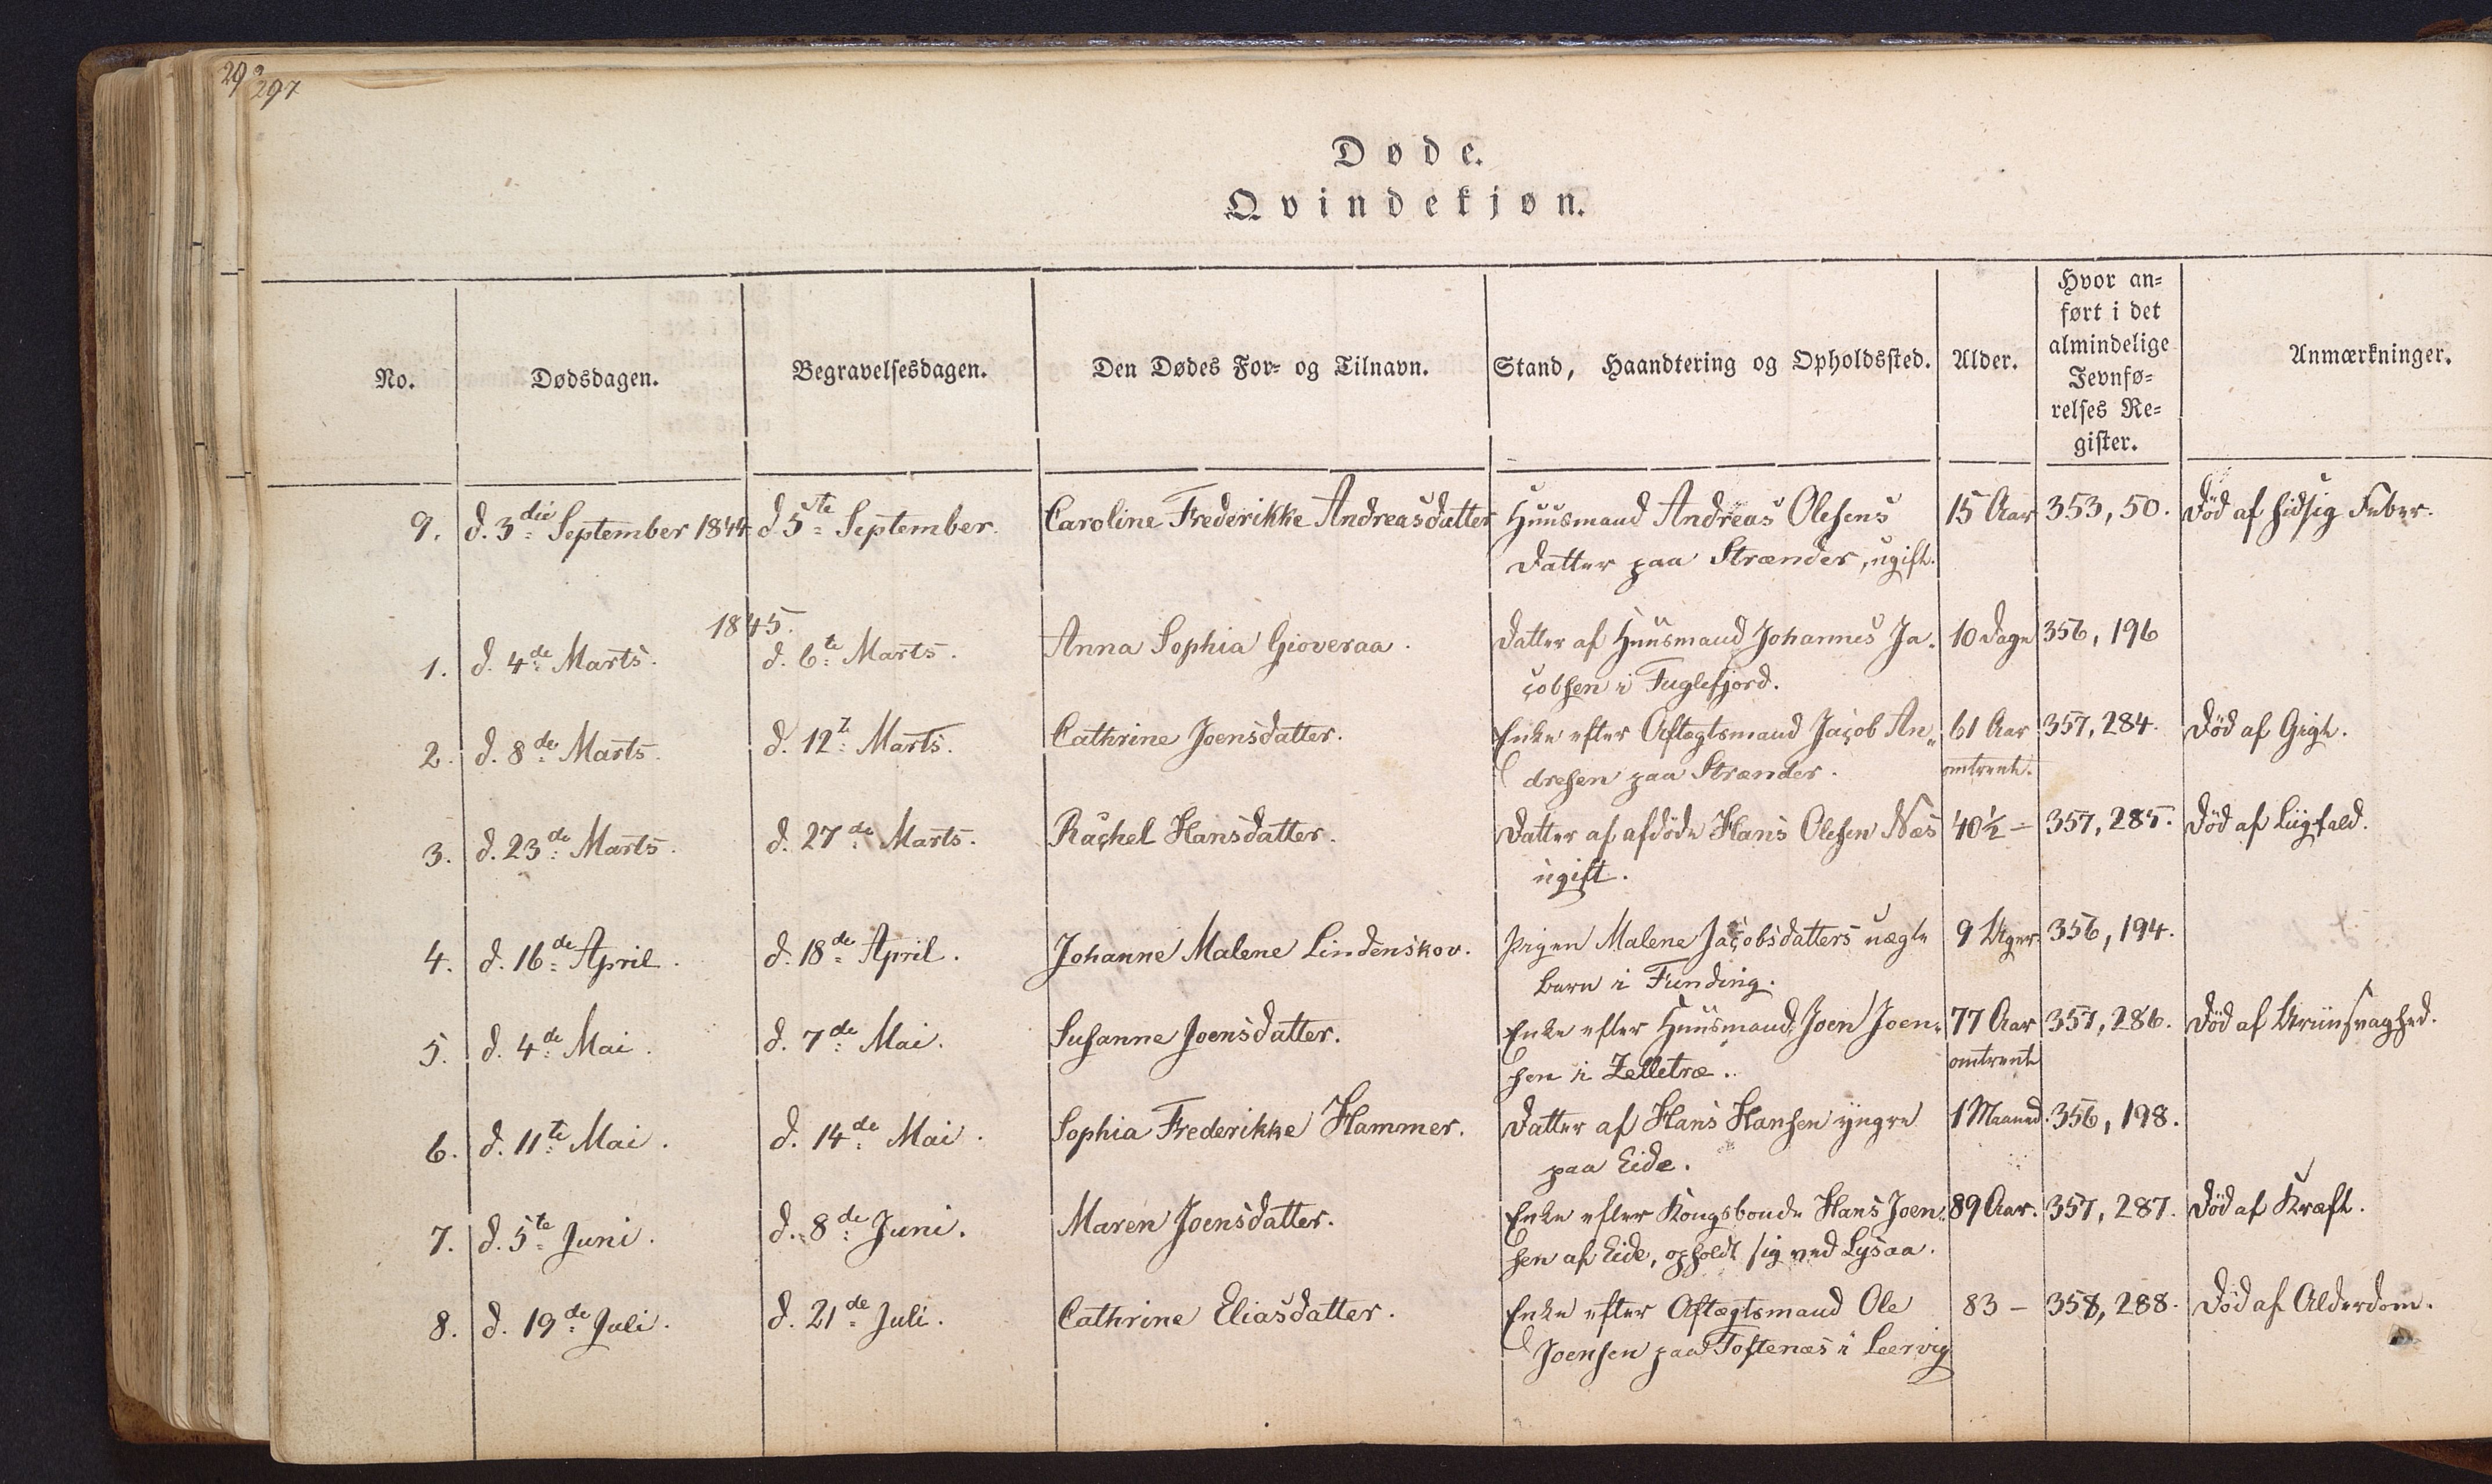 29
297
Døde.
Qvindekjøn.
No. Dødsdagen. Begravelsesdagen. Den Dødes For- og Tilnavn. Stand, Haandtering og Opholdssted. Alder. Hvor an-
ført i det
almindelige
Jevnfø-
relses Re-
gister. Anmærkninger.
9. d. 3die September 1844 d 5te September. Caroline Frederikke Andreasdatter Huusmand Andreas Olesens 15 Aar 353, 50. Död af hidsig Feber.
Datter paa Strænder, ugift.
1845.
1. d. 4de Marts. d. 6te Marts. Anna Sophia Gioveraa. Datter af Huusmand Johannes Ja- 10 Dage 356, 196
cobsen i Fuglefjord.
2. d. 8de Marts. d. 12t Marts. Cathrine Joensdatter. Enke efter Aftægtsmand Jacob An- 61 Aar 357, 284. Död af Gigt.
dresen paa Strænder. omtrent.
3. d. 23de Marts. d. 27de Marts. Rachel Hansdatter. Datter af afdöde Hans Olesen Næs 40½ - 357, 285. Död af Liigfald.
ugift.
4. d. 16de April. d. 18de April. Johanne Malene Lindenskov. Pigen Malene Jacobsdatters uægte 9 Uger. 356, 194.
Barn i Funding.
5. d. 4de Mai. d. 7de Mai. Susanne Joensdatter. Enke efter Huusmand Joen Joen- 77 Aar 357, 286. Död af
sen i Zelletræ. omtrent
6. d. 11te Mai. d. 14de Mai. Sophia Frederikke Hammer. Datter af Hans Hansen yngre 1 Maaned. 356, 198.
paa Eide.
7. d. 5te Juni. d. 8de Juni. Maren Joensdatter. Enke efter Kongsbonde Hans Joen- 89 Aar. 357, 287. Död af Kræft.
sen af Eide, opholdt sig ved Lysaa.
8. d. 19de Juli. d. 21de Juli. Cathrine Eliasdatter. Enke efter Aftægtsmand Ole 83 - 358, 288. Död af Alderdom.
Joensen paa Toftenæs i Leervig